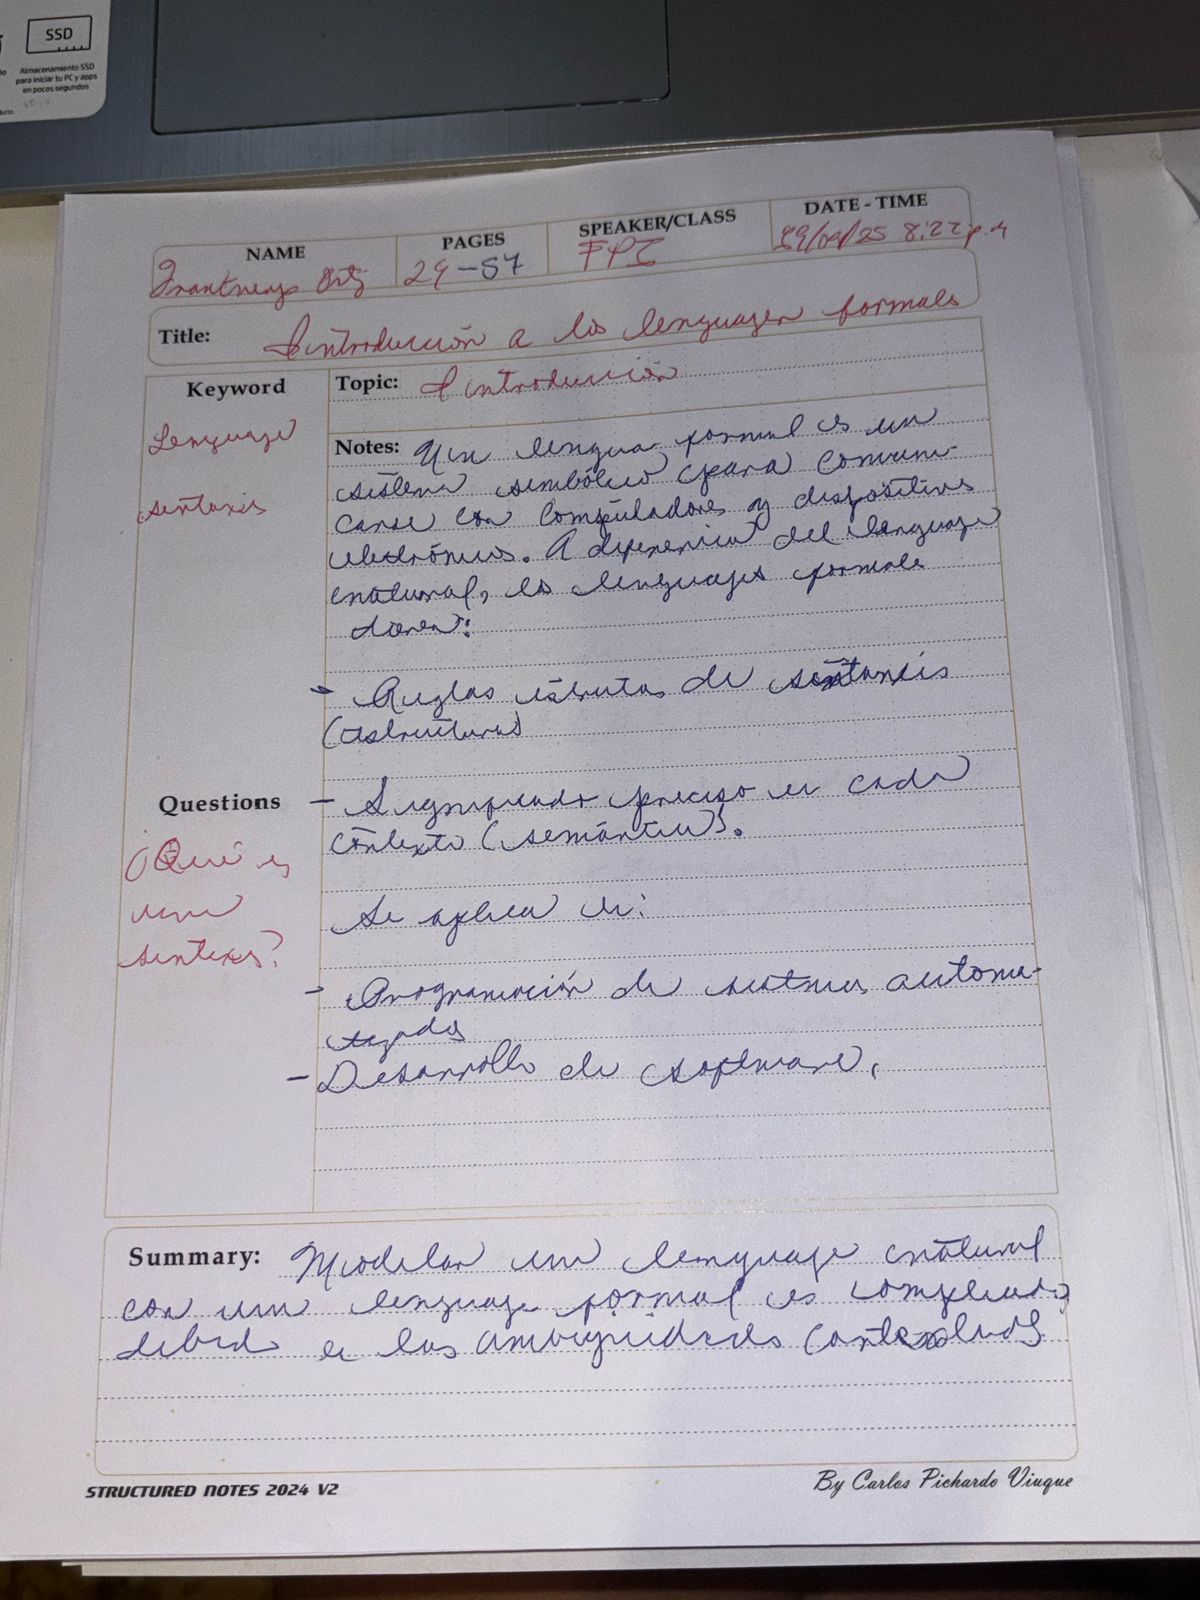 SSD
Almacenamiento SSD
para iniciar tu PC y apps
en pocos segundos
NAME
PAGES
SPEAKER/CLASS
DATE - TIME
29-57
FPI
/09/25 8:22 p.m
Title: Introducción a los lenguajes formales
Keyword
Topic: Introducción
Lenguaje
sintaxis
Notes: Un lengua formal es un
sistema simbólico para comuni-
carse con computadores y dispositivos
electrónicos. A diferencia del lenguaje
natural, los lenguajes formales
tienen:
- Reglas estrictas de sintaxis
(estructura)
Questions
- Significado preciso en cada
contexto (semántica).
¿Qué es
una
sintaxis?
Se aplica en:
- Programación de sistemas automa-
tizados
- Desarrollo de software.
Summary: Modelar un lenguaje natural
con un lenguaje formal es complicado
debido a las ambigüedades contextuales
STRUCTURED NOTES 2024 V2
By Carlos Pichardo Viuque